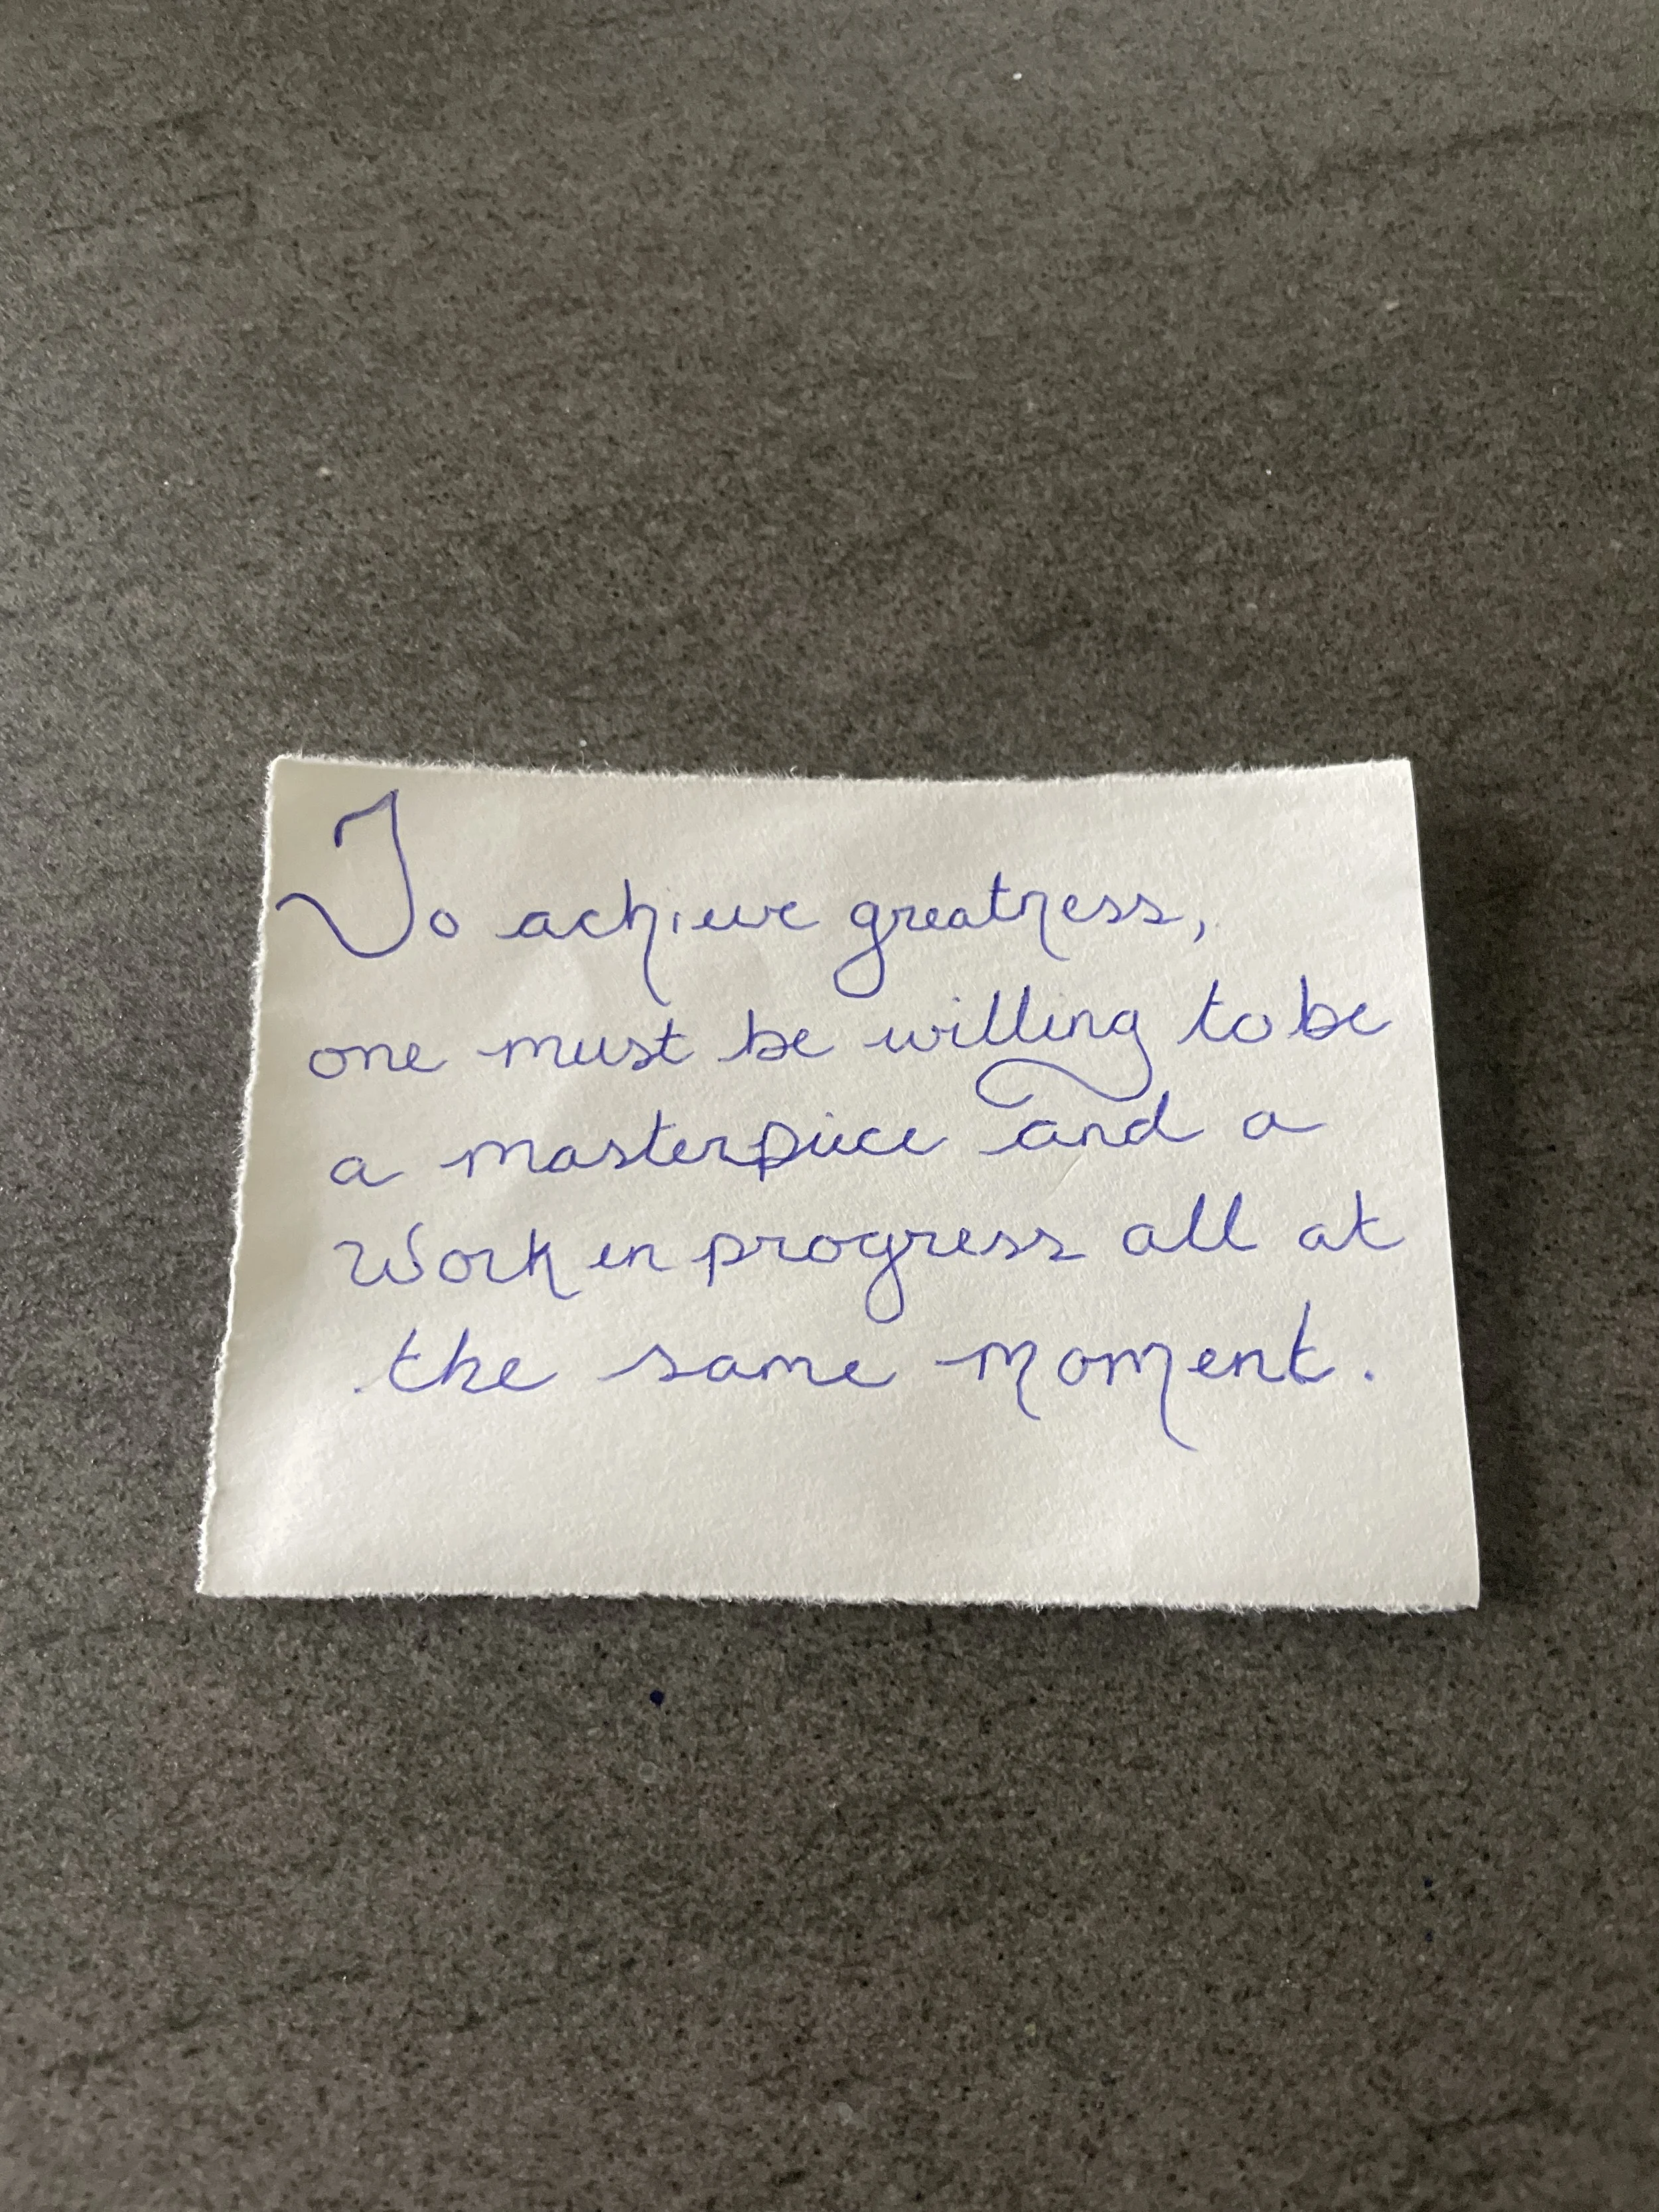 To achieve greatness,
one must be willing to be
a masterpiece and a
Work in progress all at
the same moment.